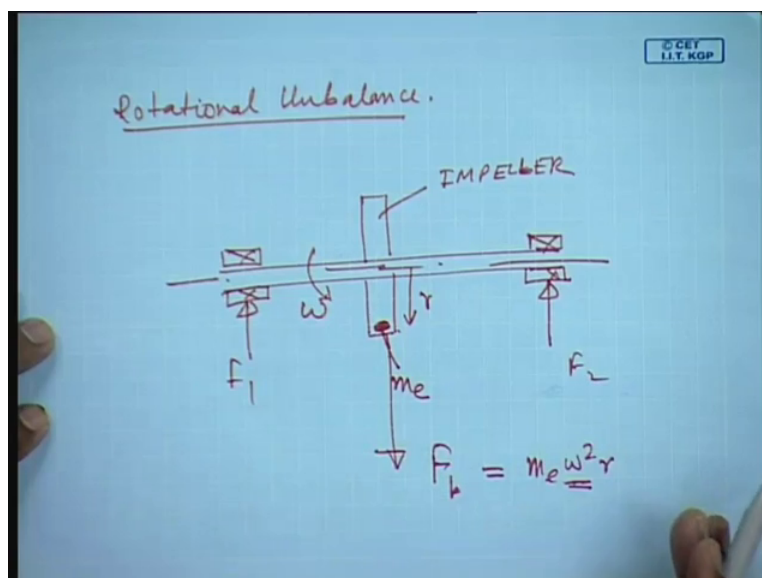 © CET
I.I.T. KGP
Rotational Unbalance.
IMPELLER
ω
r
F1
me
F2
Fb = me ω² r